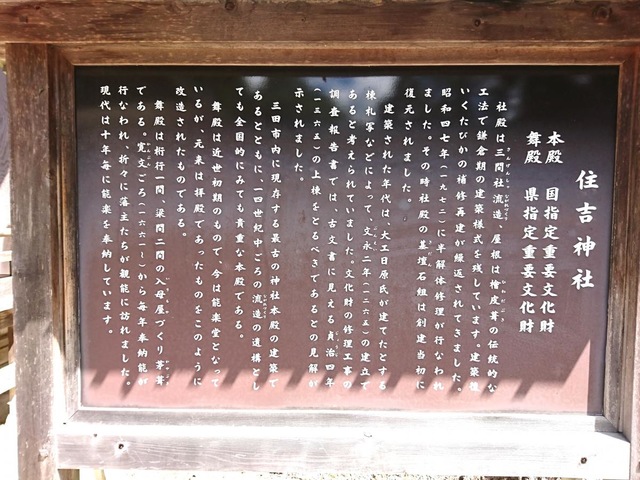 住吉神社
本殿　国指定重要文化財
舞殿　県指定重要文化財
社殿は三間社流造、屋根は檜皮葺の伝統的な
工法で鎌倉期の建築様式を残しています。建築後
いくたびかの補修再建が繰返されてきました。
昭和四七年（一九七二）に半解体修理が行なわれ
ました。その時社殿の基壇石組は創建当初に
復元されました。
建築された年代は、大工日原氏が建てたとする
棟札写などによって、文永二年（一二六五）の建立で
あると考えられていました。文化財の修理工事の
調査報告書では、古文書に見える貞治四年
（一三六五）の上棟をとるべきであるとの見解が
示されました。
三田市内に現存する最古の神社本殿の建築で
あるとともに、一四世紀中ごろの流造の遺構とし
ても全国的にみても貴重な本殿である。
舞殿は近世初期のもので、今は能楽堂となって
いるが、元来は拝殿であったものをこのように
改造されたものである。
舞殿は桁行一間、梁間二間の入母屋づくり茅葺
である。寛文ごろ（一六六一）から毎年奉納能が
行なわれ、折々に藩主たちが観能に訪れました。
現代は十年毎に能楽を奉納しています。